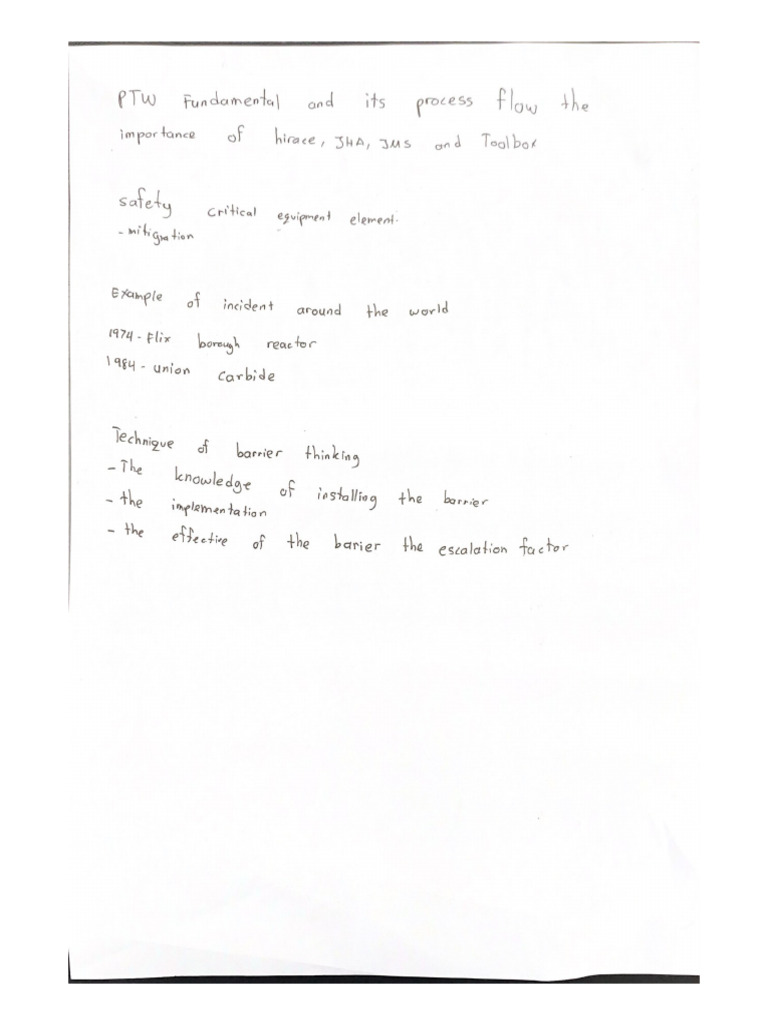 PTW Fundamental and its process flow the
importance of hirace, JHA, JMS and Toolbox
safety critical equipment element.
- mitigration
Example of incident around the world
1974 - Flix borough reactor
1984 - union carbide
Technique of barrier thinking
- The knowledge of installing the barrier
- the implementation
- the effective of the barier the escalation factor